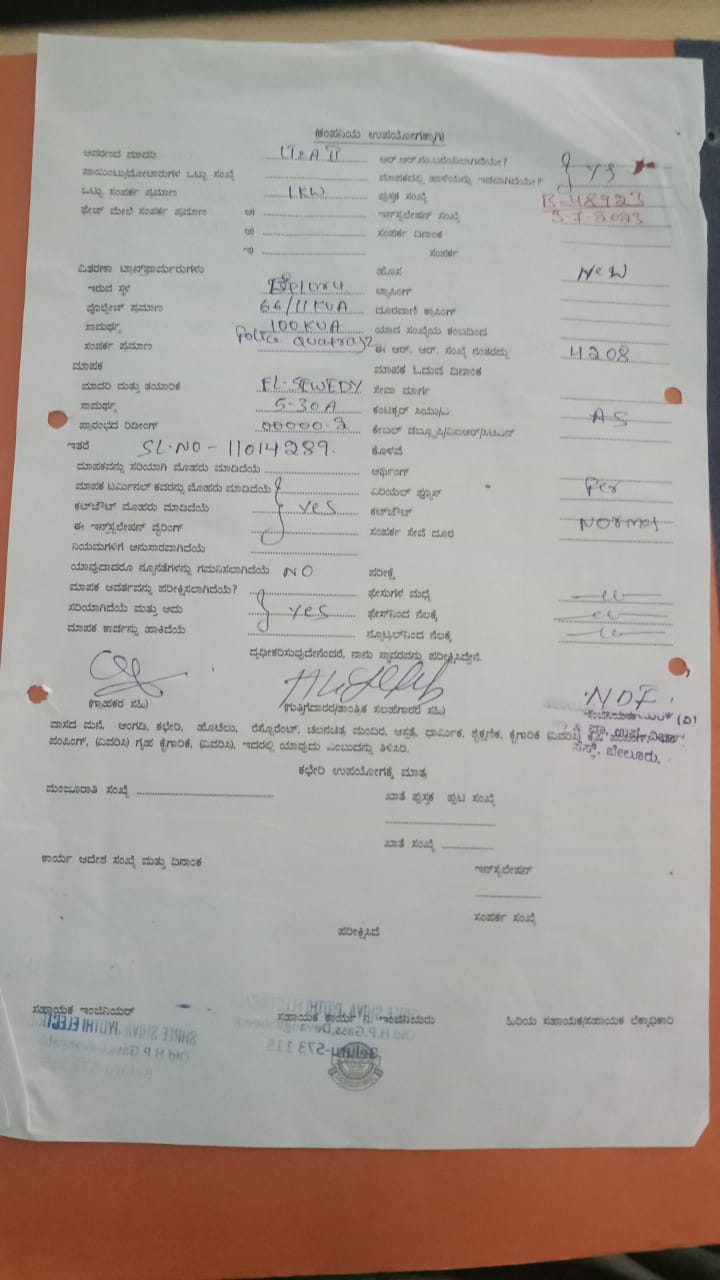 (ಕಂಪನಿಯ ಉಪಯೋಗಕ್ಕಾಗಿ)
ಆವರಣದ ಮಾದರಿ LT2A II ಆರ್.ಆರ್.ಸಂ.ಬರೆಯಲಾಗಿದೆಯೇ?
ಪಾಯಿಂಟು/ಮೋಟಾರುಗಳ ಒಟ್ಟು ಸಂಖ್ಯೆ ಮಾಪಕದಲ್ಲಿ ಹಾಳೆಯನ್ನು ಇಡಲಾಗಿದೆಯೇ? } Y S
ಒಟ್ಟು ಸಂಪರ್ಕ ಪ್ರಮಾಣ 1KW ಪುಸ್ತಕ ಸಂಖ್ಯೆ B-48923
ಫೇಜ್ ಮೇಲೆ ಸಂಪರ್ಕ ಪ್ರಮಾಣ ಅ) ಇನ್ಸ್ಟಲೇಷನ್ ಸಂಖ್ಯೆ
ಆ) ಸಂಪರ್ಕ ದಿನಾಂಕ
ಇ) ಸಂಪರ್ಕ
ವಿತರಣಾ ಟ್ರಾನ್ಸ್‌ಫಾರ್ಮರುಗಳು ಹೊಸ New
ಇರುವ ಸ್ಥಳ ಬೇಲೂರು ಟ್ಯಾಪಿಂಗ್
ವೊಲ್ಟೇಜ್ ಪ್ರಮಾಣ 66/11 KVA ದೂರವಾಣಿ ಕ್ರಾಸಿಂಗ್
ಸಾಮರ್ಥ್ಯ 100 KVA ಯಾವ ಸಂಖ್ಯೆಯ ಕಂಬದಿಂದ
ಸಂಪರ್ಕ ಪ್ರಮಾಣ Police Quatras2 ಈ ಆರ್. ಆರ್. ಸಂಖ್ಯೆ ನಂತರದ್ದು 4208
ಮಾಪಕ ಮಾಪಕ ಓದುವ ದಿನಾಂಕ
ಮಾದರಿ ಮತ್ತು ತಯಾರಿಕೆ EL-SEWEDY ಸೇವಾ ಮಾರ್ಗ
ಸಾಮರ್ಥ್ಯ 5-30A ಕಂಡಕ್ಟರ್ ಸಿಯು/ಎ AS
ಪ್ರಾರಂಭದ ರಿಡೀಂಗ್ 00000.3 ಕೇಬಲ್
ಇತರೆ SL.NO - 11014289. ಕೊಳವೆ
ಮಾಪಕವನ್ನು ಸರಿಯಾಗಿ ಮೊಹರು ಮಾಡಿದೆಯೆ ಅರ್ಥಿಂಗ್
ಮಾಪಕ ಟರ್ಮಿನಲ್ ಕವರನ್ನು ಮೊಹರು ಮಾಡಿದೆಯೆ ಏರಿಯಲ್ ಫ್ಯೂಸ್ Per
ಕಟ್‌ಔಟ್ ಮೊಹರು ಮಾಡಿದೆಯೆ } yes ಕಟ್‌ಔಟ್
ಈ ಇನ್ಸ್ಟಲೇಷನ್ ವೈರಿಂಗ್ ಸಂಪರ್ಕ ಸೇವೆ ದೂರ Normal
ನಿಯಮಗಳಿಗೆ ಅನುಸಾರವಾಗಿದೆಯೆ
ಯಾವುದಾದರೂ ನ್ಯೂನತೆಗಳನ್ನು ಗಮನಿಸಲಾಗಿದೆಯೆ NO ಪರೀಕ್ಷೆ
ಮಾಪಕ ಆವರ್ತವನ್ನು ಪರೀಕ್ಷಿಸಲಾಗಿದೆಯೆ? ಫೇಸುಗಳ ಮಧ್ಯೆ
ಸರಿಯಾಗಿದೆಯೆ ಮತ್ತು ಅದು } yes ಫೇಸ್‌ನಿಂದ ನೆಲಕ್ಕೆ
ಮಾಪಕ ಕಾರ್ಡನ್ನು ಹಾಕಿದೆಯೆ ನ್ಯೂಟ್ರಲ್‌ನಿಂದ ನೆಲಕ್ಕೆ
ದೃಢೀಕರಿಸುವುದೇನೆಂದರೆ, ನಾನು ಸ್ಥಾವರವನ್ನು ಪರೀಕ್ಷಿಸಿದ್ದೇನೆ.
(ಗ್ರಾಹಕರ ಸಹಿ) (ಗುತ್ತಿಗೆದಾರರ/ತಾಂತ್ರಿಕ ಸಲಹೆಗಾರರ ಸಹಿ)
ವಾಸದ ಮನೆ, ಅಂಗಡಿ, ಕಛೇರಿ, ಹೊಟೇಲು, ರೆಸ್ಟೋರೆಂಟ್, ಚಲನಚಿತ್ರ ಮಂದಿರ, ಆಸ್ಪತ್ರೆ, ಧಾರ್ಮಿಕ, ಶೈಕ್ಷಣಿಕ, ಕೈಗಾರಿಕೆ (ವಿವರಿಸಿ)
ಪಂಪಿಂಗ್, (ವಿವರಿಸಿ) ಗೃಹ ಕೈಗಾರಿಕೆ, (ವಿವರಿಸಿ), ಇದರಲ್ಲಿ ಯಾವುದು ಎಂಬುದನ್ನು ತಿಳಿಸಿರಿ. ಬೇಲೂರು.
ಕಛೇರಿ ಉಪಯೋಗಕ್ಕೆ ಮಾತ್ರ
ಮಂಜೂರಾತಿ ಸಂಖ್ಯೆ ಖಾತೆ ಪುಸ್ತಕ ಪುಟ ಸಂಖ್ಯೆ
ಖಾತೆ ಸಂಖ್ಯೆ
ಕಾರ್ಯ ಆದೇಶ ಸಂಖ್ಯೆ ಮತ್ತು ದಿನಾಂಕ ಇನ್ಸ್ಟಲೇಷನ್
ಸಂಪರ್ಕ ಸಂಖ್ಯೆ
ಪರೀಕ್ಷಿಸಿದೆ
ಸಹಾಯಕ ಇಂಜಿನಿಯರ್ ಸಹಾಯಕ ಕಾರ್ಯ ನಿ. ಇಂಜಿನಿಯರು ಹಿರಿಯ ಸಹಾಯಕ/ಸಹಾಯಕ ಲೆಕ್ಕಾಧಿಕಾರಿ